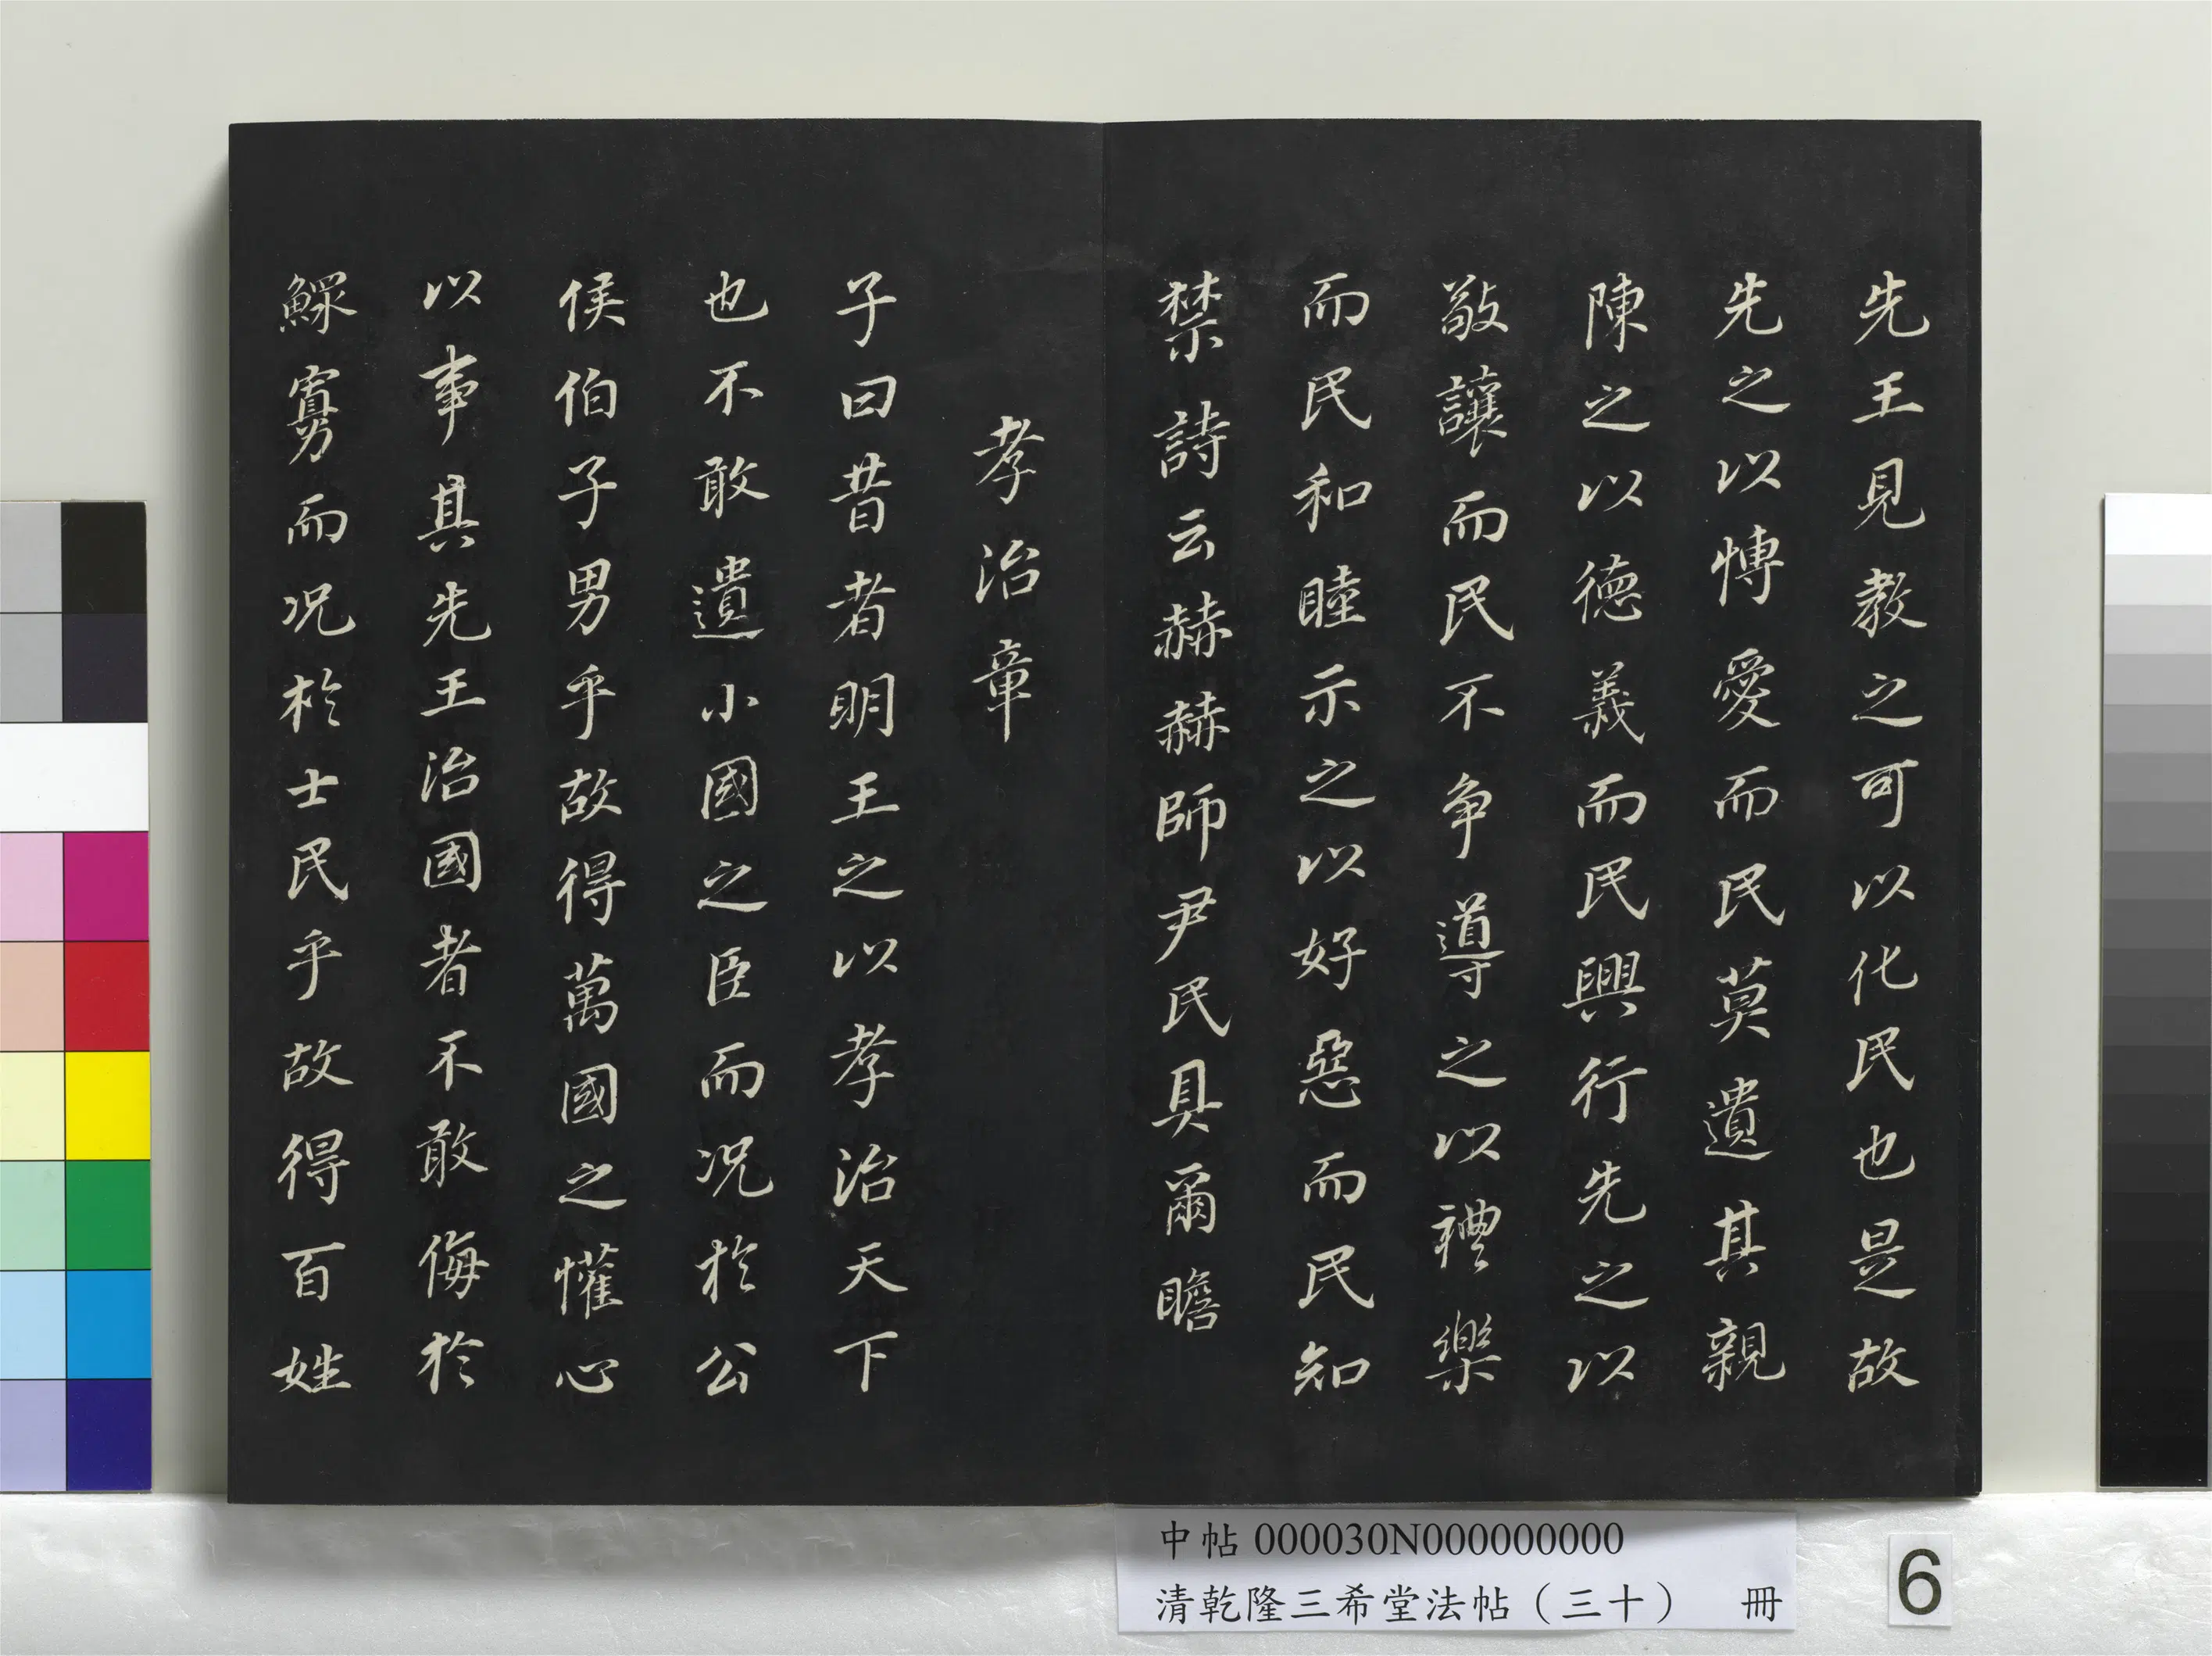 先王見教之可以化民也是故
先之以愽愛而民莫遺其親
陳之以德義而民興行先之以
敬讓而民不爭導之以禮樂
而民和睦示之以好惡而民知
禁詩云赫赫師尹民具爾瞻
孝治章
子曰昔者明王之以孝治天下
也不敢遺小國之臣而况於公
侯伯子男乎故得萬國之懽心
以事其先王治國者不敢侮於
鰥寡而况於士民乎故得百姓
中帖 000030N000000000
清乾隆三希堂法帖（三十） 冊
6